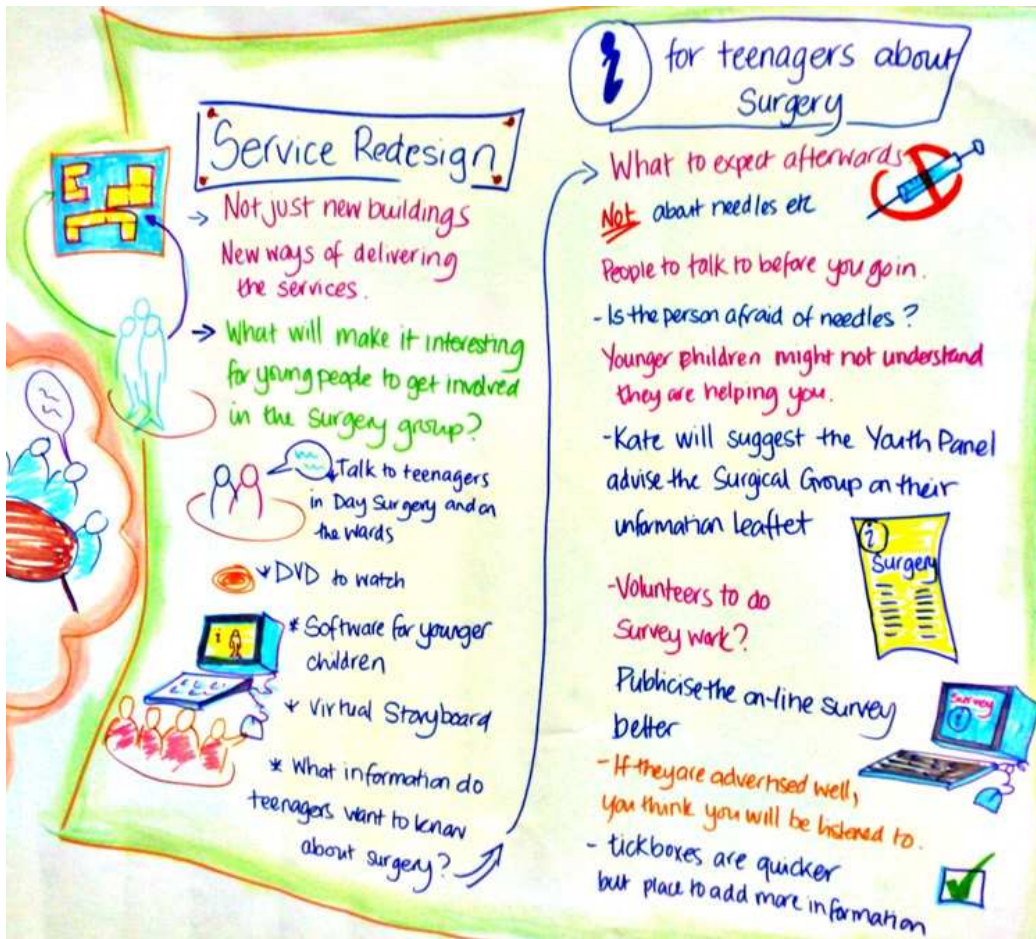 Service Redesign
→ Not just new buildings
New ways of delivering
the services.
→ What will make it interesting
for young people to get involved
in the surgery group?
* Talk to teenagers
in Day Surgery and on
the wards
* DVD to watch
i
* Software for younger
children
* Virtual Storyboard
* What information do
teenagers want to know
about surgery?
i for teenagers about
Surgery
What to expect afterwards
Not about needles etc
People to talk to before you go in.
- Is the person afraid of needles?
Younger children might not understand
they are helping you.
- Kate will suggest the Youth Panel
advise the Surgical Group on their
information leaflet
i
Surgery
- Volunteers to do
Survey work?
Publicise the on-line survey
better
Survey
i
- If they are advertised well,
you think you will be listened to.
- tickboxes are quicker
but place to add more information